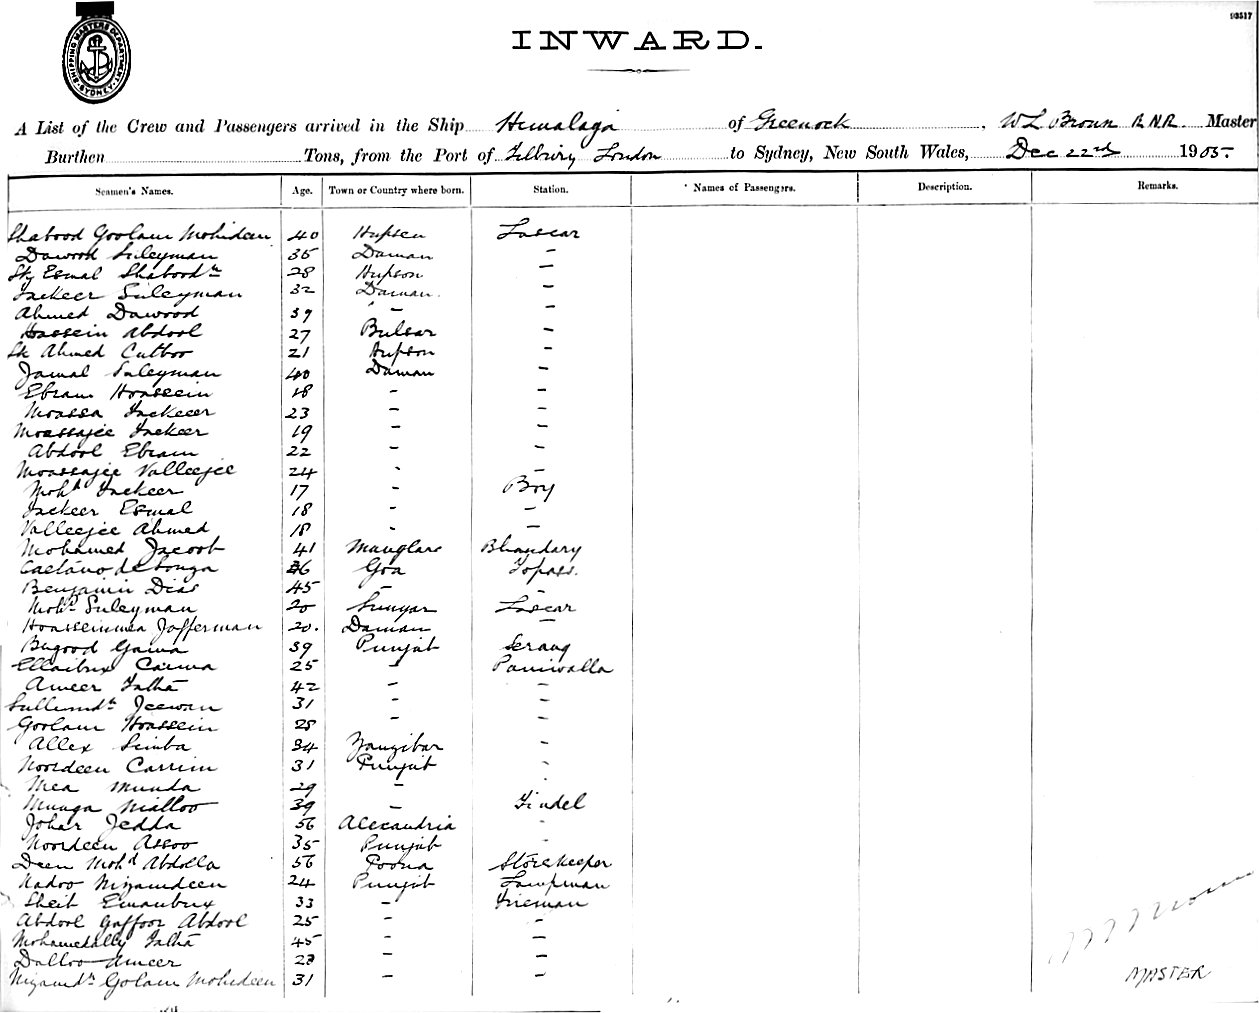 93517
SHIPPING MASTERS DEPARTMENT SYDNEY
INWARD.
A List of the Crew and Passengers arrived in the Ship Himalaya of Greenock, W L Brown R.N.R. Master
Burthen Tons, from the Port of Tilbury London to Sydney, New South Wales, Dec 22nd 1905.
Seamen's Names. Age. Town or Country where born. Station. Names of Passengers. Description. Remarks.
Shabood Goolam Mohideen 40 Hupson Lascar
Dawood Suleyman 35 Daman –
Sk Esmal Shabood 28 Hupson –
Fackeer Suleyman 32 Daman –
Ahmed Dawood 39 " – –
Hassein Abdool 27 Bulsar –
Sk Ahmed Cutboo 21 Hupson –
Jamal Suleyman 40 Daman –
Ebram Hoassein 18 – –
Moassa Fackeer 23 – –
Moassajee Fackeer 19 – –
Abdool Ebram 22 – –
Moassajee Valleejee 24 – –
Mohd Fackeer 17 – Boy
Fackeer Esmal 18 – –
Valleejee Ahmed 18 – –
Mohamed Jacoob 41 Manglare Bhandary
Caetano de Souza 36 Goa Topass.
Benjamin Dias 45 – –
Mohd Suleyman 20 Lascar
Hoasseinmea Jofferman 20. Daman –
Bugood Gama 39 Punjab Serang
Ellaibux Carima 25 – Paniwalla
Ameer Fatha 42 – –
Jeewan 31 – –
Goolam Hoassein 28 –
Allex Simba 34 Zanzibar –
Noordeen Carrim 31 Punjab -
Mea Munda 29 –
Munga Malloo 39 – Tindel
Johar Jedda 56 Alexandria -
Noordeen Assoo 35 Punjab -
Deen Mohd Abdolla 56 Poona Storekeeper
Nadoo Nizamdeen 24 Punjab Lampman
Sheib Emambux 33 – Fireman
Abdool Gaffoor Abdool 25 – –
Mohamedally Fatha 45 – –
Dalloo Ameer 28 – –
Nizamdn Golam Mohideen 31 – –
MASTER